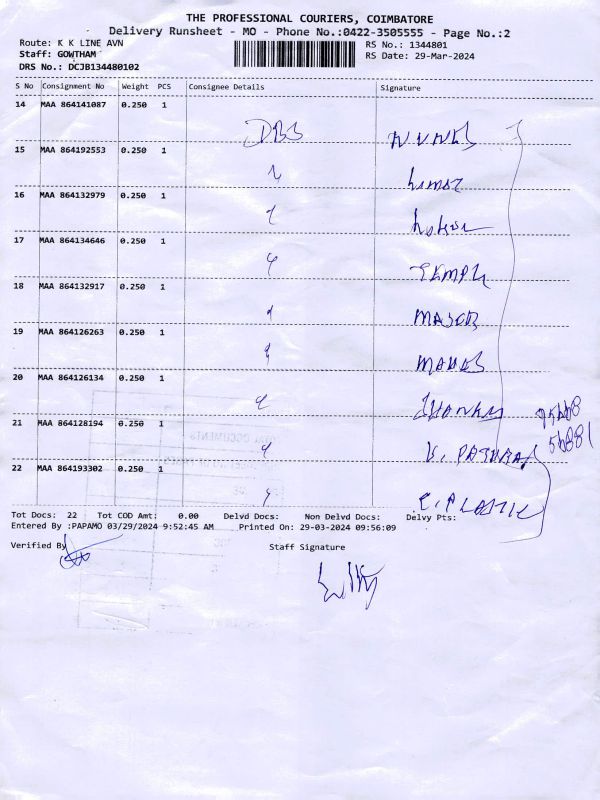 THE PROFESSIONAL COURIERS, COIMBATORE
Delivery Runsheet - MO - Phone No.:0422-3505555 - Page No.:2
Route: K K LINE AVN RS No.: 1344801
Staff: GOWTHAM RS Date: 29-Mar-2024
DRS No.: DCJB134480102
S No Consignment No Weight PCS Consignee Details Signature
14 MAA 864141087 0.250 1
DBS
15 MAA 864192553 0.250 1
16 MAA 864132979 0.250 1
17 MAA 864134646 0.250 1
TEMPL
18 MAA 864132917 0.250 1
MAJOR
19 MAA 864126263 0.250 1
20 MAA 864126134 0.250 1
21 MAA 864128194 0.250 1
22 MAA 864193302 0.250 1
Tot Docs: 22 Tot COD Amt: 0.00 Delvd Docs: Non Delvd Docs: Delvy Pts:
Entered By :PAPAMO 03/29/2024 9:52:45 AM Printed On: 29-03-2024 09:56:09
Verified By Staff Signature